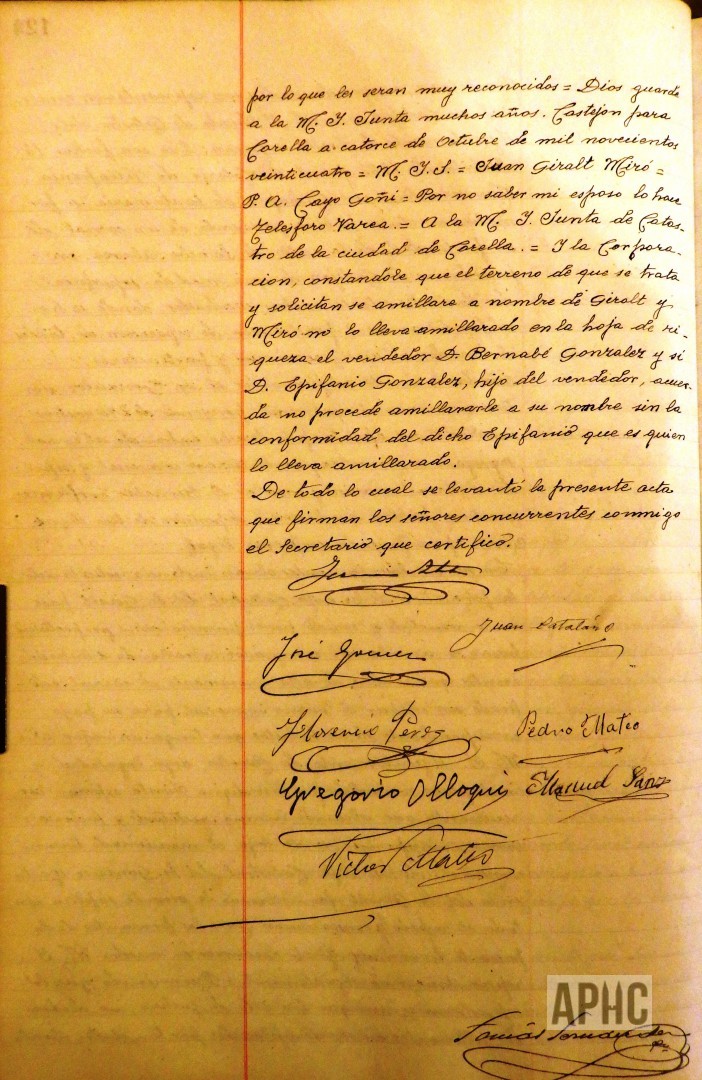 por lo que les seran muy reconocidos = Dios guarde
a la M. Y. Junta muchos años. Castejon para
Corella a catorce de Octubre de mil novecientos
veinticuatro = M. Y. S. = Juan Giralt Miró =
P. A. Cayo Goñi = Por no saber mi esposo lo hace
Telesforo Varea. = A la M. Y. Junta de Catas-
tro de la ciudad de Corella. = Y la Corpora-
cion, constandole que el terreno de que se trata
y solicitan se amillare a nombre de Giralt y
Miró no lo lleva amillarado en la hoja de ri-
queza el vendedor D. Bernabé Gonzalez y si
D. Epifanio Gonzalez, hijo del vendedor, acuer-
da no procede amillararle a su nombre sin la
conformidad del dicho Epifanio que es quien
lo lleva amillarado.
De todo lo cual se levantó la presente acta
que firman los señores concurrentes conmigo
el Secretario que certifico.
Juan Catalán
José Gomez
Florencio Perez Pedro Mateo
Gregorio Olloqui Manuel Sanz
Victor Mateo
APHC
Tomás Fernandez